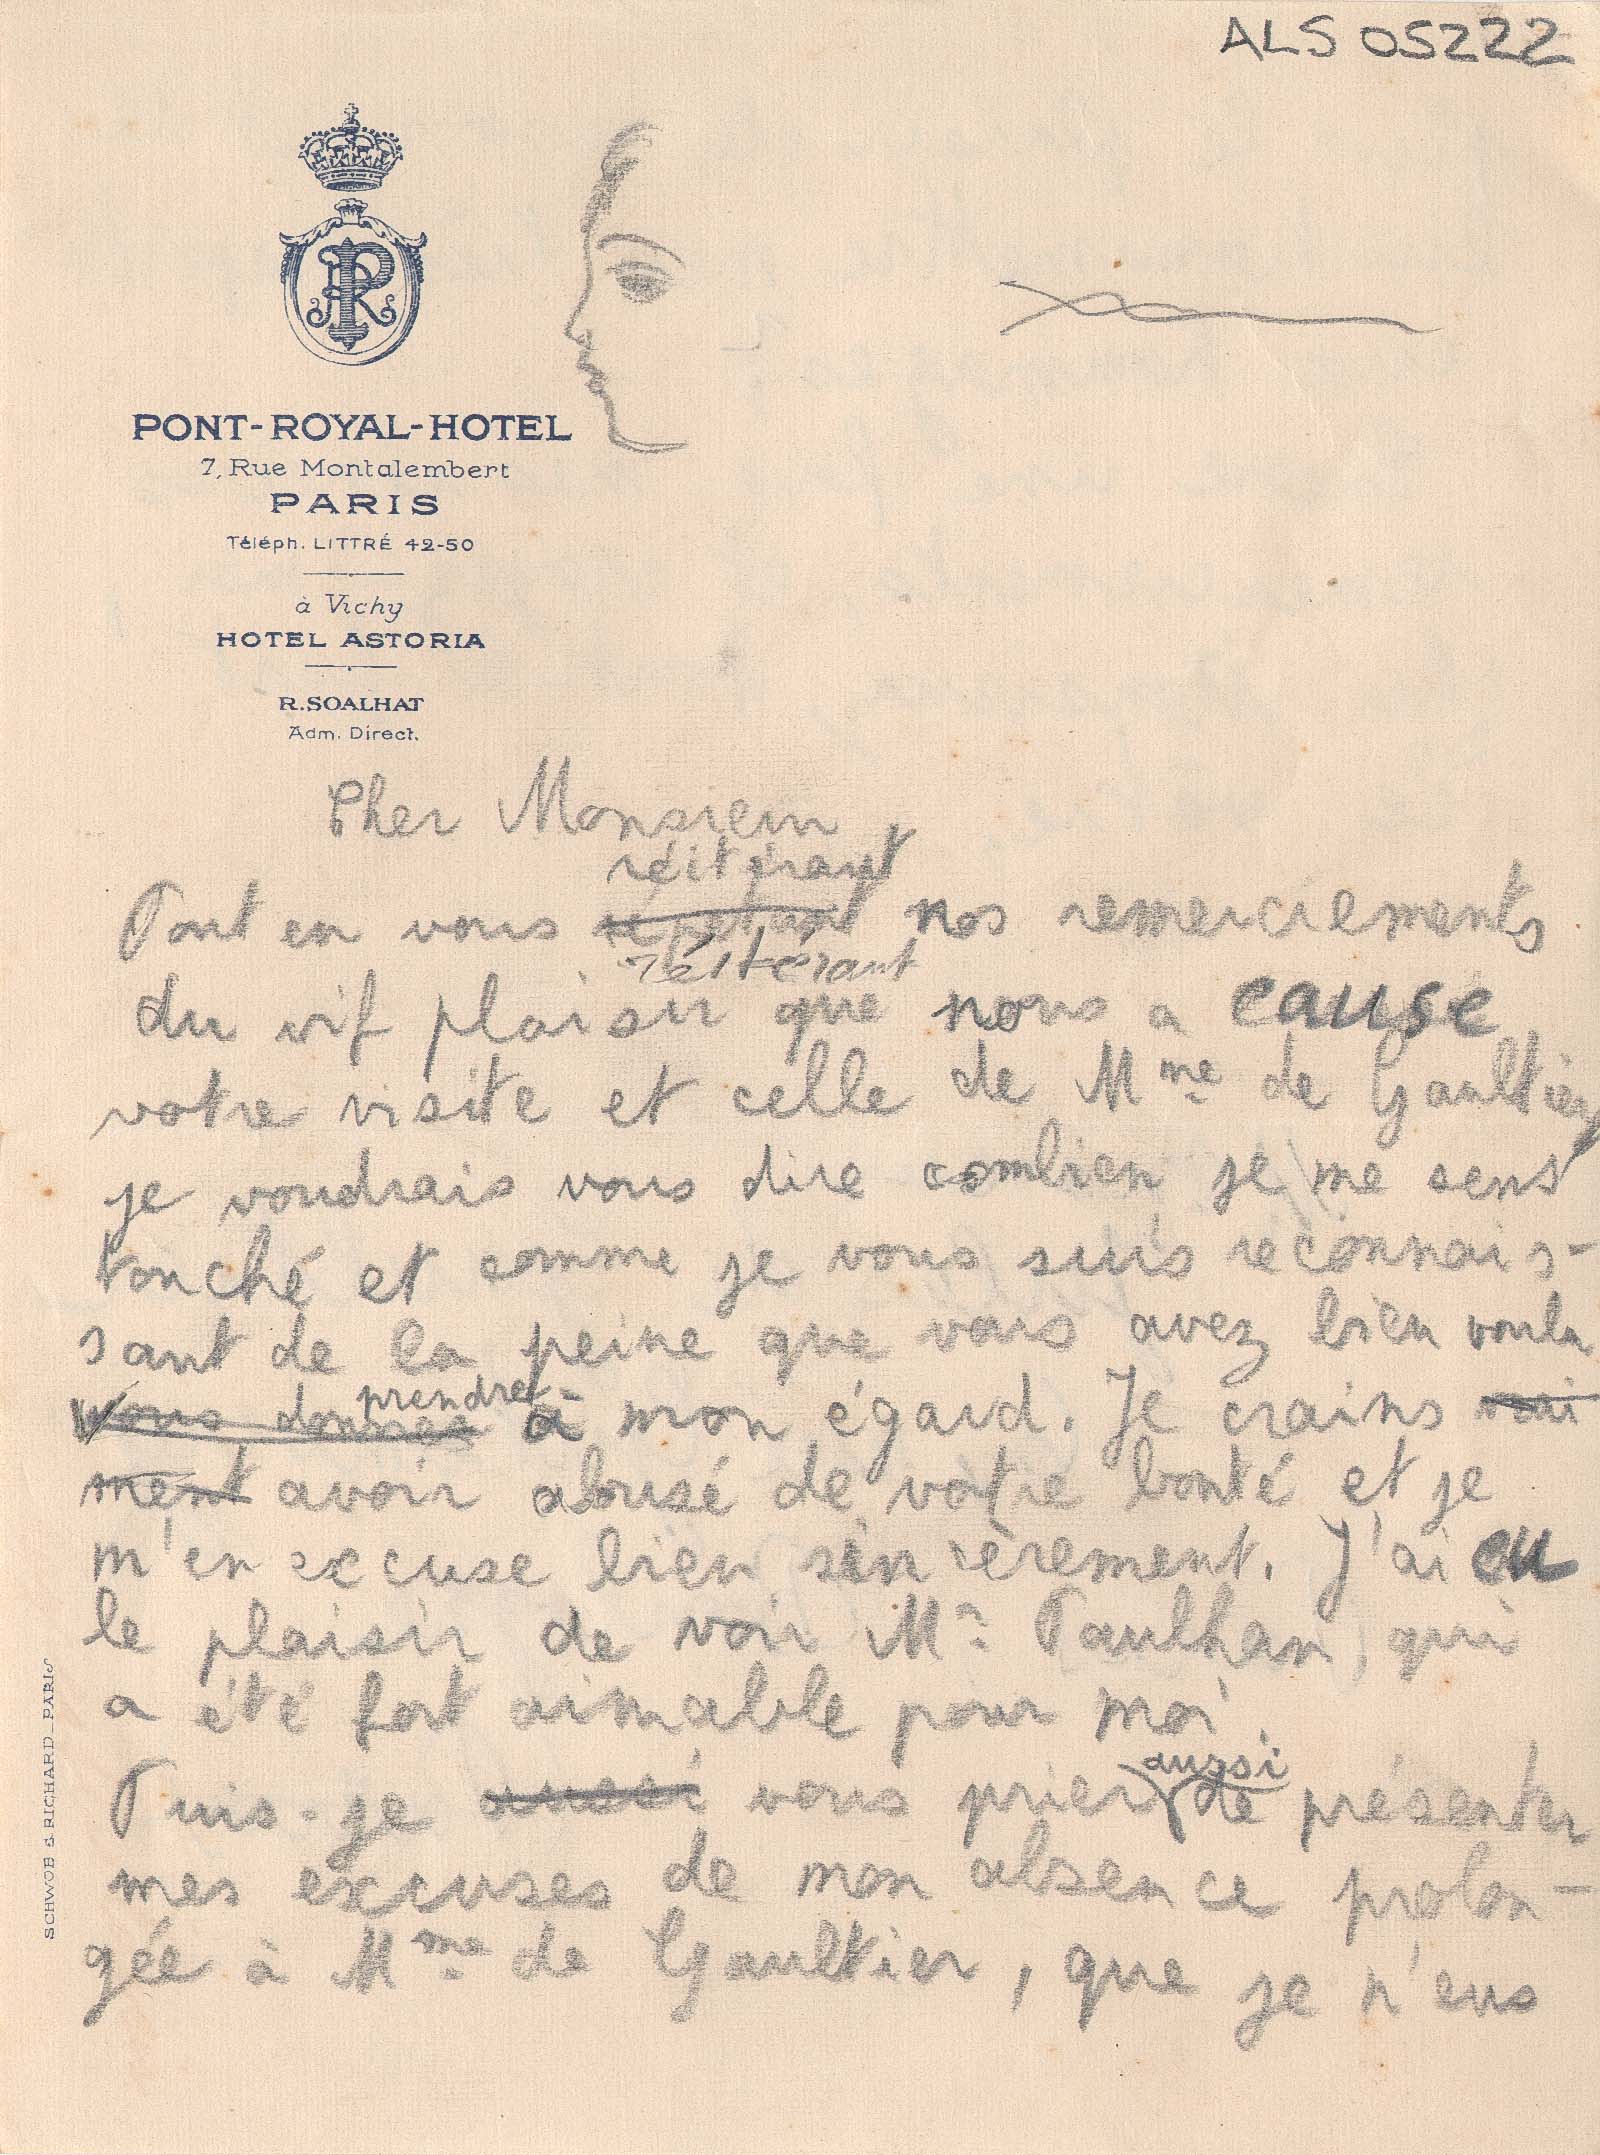 ALS 05222
PR
PONT-ROYAL-HOTEL
7, Rue Montalembert
PARIS
Téléph. LITTRÉ 42-50
à Vichy
HOTEL ASTORIA
R. SOALHAT
Adm. Direct.
Cher Monsieur
réitérant
Tout en vous répétant nos remerciements
réitérant
du vif plaisir que nous a causé
votre visite et celle de Mme de Gaultier,
je voudrais vous dire combien je me sens
touché et comme je vous suis reconnais-
sant de la peine que vous avez bien voulu
prendre
vous donner à mon égard. Je crains vrai
ment avoir abusé de votre bonté et je
m'en excuse bien sincèrement. J'ai eu
le plaisir de voir Mr Paulhan, qui
a été fort aimable pour moi.
aussi
Puis-je aussi vous prier de présenter
mes excuses de mon absence prolon-
gée à Mme de Gaultier, que je n'eus
SCHWOB & RICHARD_PARIS